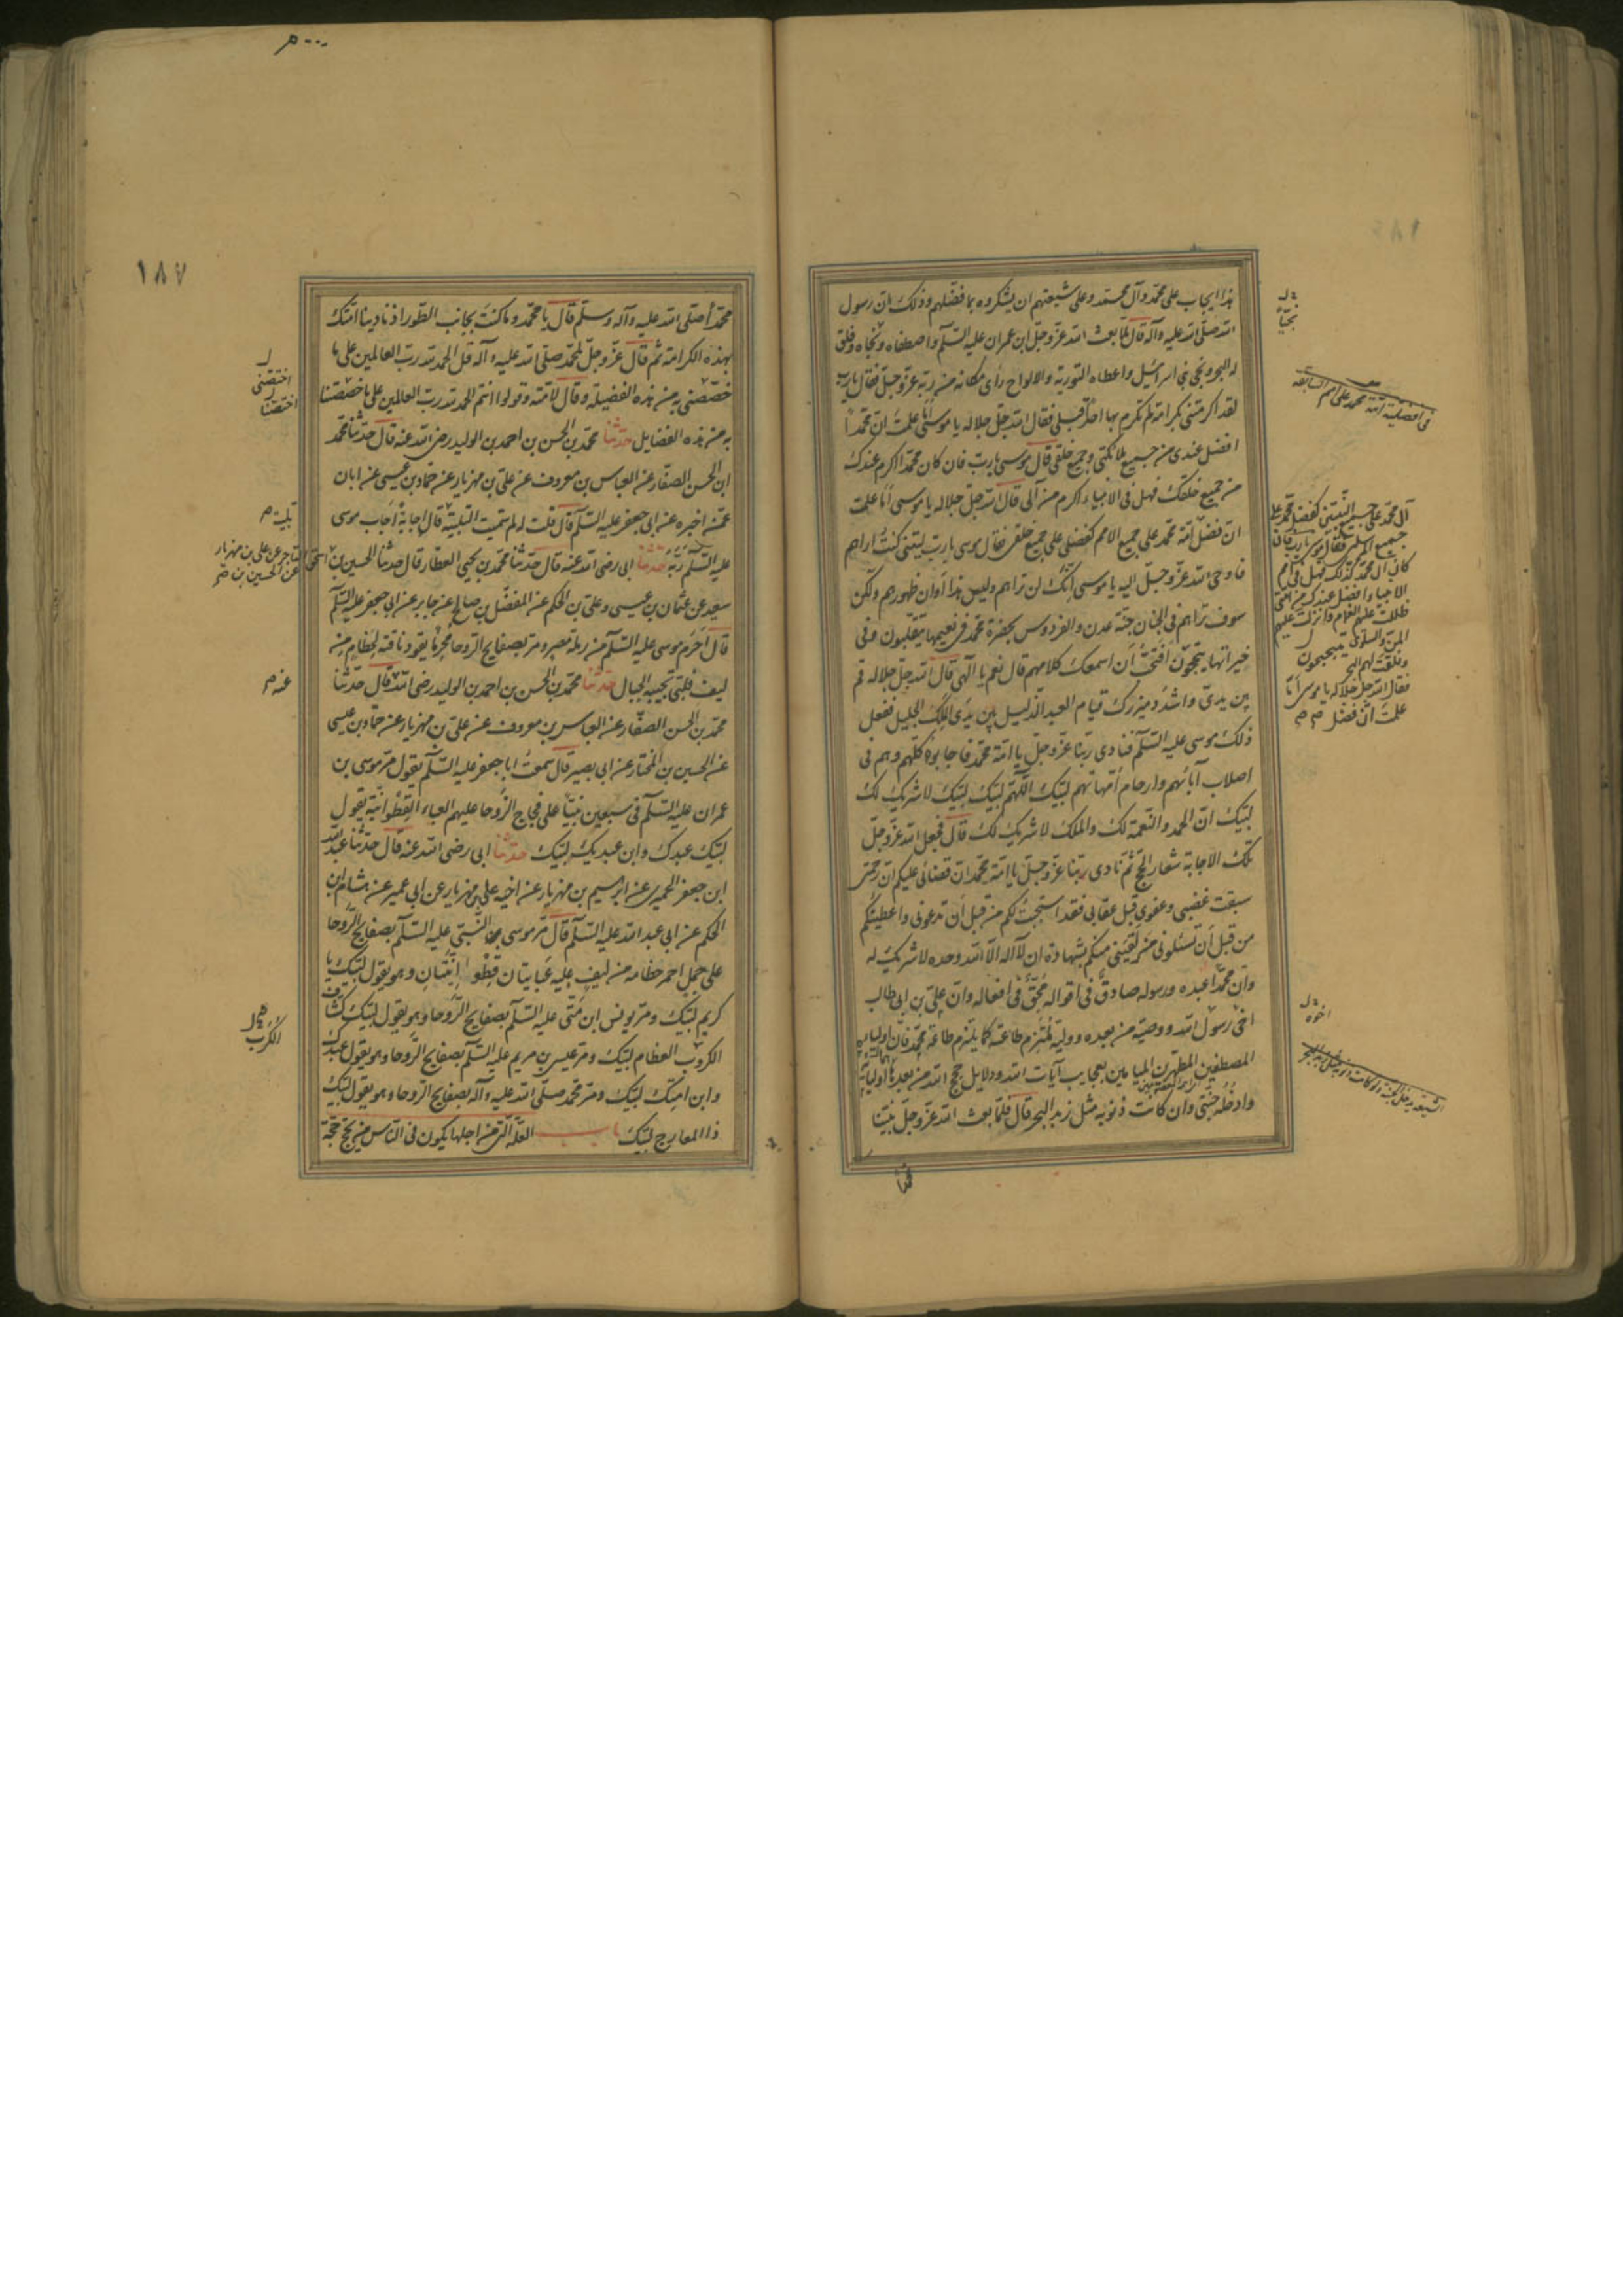 هذا ايجاب على محمد وآل محمد وعلى شيعتهم ان يشكروه بما فضّلهم وذلك ان رسول
الله صلى الله عليه وآله قال لمّا بعث الله عزّ وجلّ ابن عمران عليه السلام واصطفاه ونجّاه وفلق
له البحر ونجى بني اسرائيل واعطاه التورية والالواح رأى مكانه من ربّه عزّ وجلّ فقال يا رب
لقد اكرمتني بكرامة لم تكرم بها احداً قبلي فقال الله جلّ جلاله يا موسى أما علمت ان محمداً
افضل عندي من جميع ملائكتي وجميع خلقي قال موسى يا ربّ فان كان محمد اكرم عندك
من جميع خلقك فهل في آل الانبياء اكرم من آلي قال الله جلّ جلاله يا موسى أما علمت
انّ فضل امّة محمد على جميع الامم كفضلي على جميع خلقي فقال موسى يا ربّ ليتني كنت اراهم
فاوحى الله عزّ وجلّ اليه يا موسى انّك لن تراهم وليس هذا اوان ظهورهم ولكن
سوف تراهم في الجنان جنة عدن والفردوس بحضرة محمد في نعيمها يتقلّبون وفي
خيراتها يتبجّحون أفتحبّ أن اسمعك كلامهم قال نعم يا الهي قال الله جلّ جلاله قم
بين يديّ واشدد ميزرك قيام العبد الذليل بين يدي الملك الجليل ففعل
ذلك موسى عليه السلم فنادى ربّنا عزّ وجلّ يا امّة محمد فاجابوه كلّهم وهم في
اصلاب آبائهم وارحام امّهاتهم لبّيك اللّهم لبّيك لبّيك لا شريك لك
لبّيك انّ الحمد والنعمة لك والملك لا شريك لك قال فجعل الله عزّ وجلّ
تلك الاجابة شعار الحج ثمّ نادى ربّنا عزّ وجلّ يا امّة محمد انّ قضائي عليكم انّ رحمتي
سبقت غضبي وعفوي قبل عقابي فقد استجبت لكم من قبل أن تدعوني واعطيتكم
من قبل أن تسئلوني من لقيني منكم بشهادة ان لا اله الا الله وحده لا شريك له
وانّ محمّداً عبده ورسوله صادق في اقواله محقّ في افعاله وانّ علي بن ابي طالب
اخي رسول الله ووصيّه من بعده ووليّه يلتزم طاعته كما يلتزم طاعة محمد فان اوليائه
المصطفين المطهرين الميامين بعجايب آيات الله ودلايل حجج الله من بعدهما اوليائه
وادخله جنّتي وان كانت ذنوبه مثل زبد البحر قال فلمّا بعث الله عزّ وجلّ نبيّنا
محمّداً
نجيّاً
في افضلية امّة محمد على امم السابقة
آل محمد على جميع النبيين كفضل محمد على
جميع المرسلين فقال موسى يا رب فان
كان آل محمد كذلك فهل في امم
الانبياء افضل عندك من امّتي
ظللت عليهم الغمام وانزلت عليهم
المن والسلوى
وفلقت لهم البحر
فقال الله جلّ جلاله يا موسى أما
علمت انّ فضل
يتبحبحون
اخوه
الشيعة يدخل الجنة ولو كانت ذنوبه مثل زبد البحر
١٨٧
محمّداً صلى الله عليه وآله وسلّم قال يا محمد وما كنت بجانب الطور اذ نادينا امّتك
بهذه الكرامة ثمّ قال عزّ وجلّ لمحمد صلى الله عليه وآله قل الحمد لله ربّ العالمين على ما
خصّصني به من هذه الفضيلة وقال لامّته وقولوا انتم الحمد لله ربّ العالمين على ما خصّصنا
به من هذه الفضايل حدّثنا محمّد بن الحسن بن احمد بن الوليد رضي الله عنه قال حدّثنا محمد
ابن الحسن الصفّار عن العباس بن معروف عن علي بن مهزيار عن حمّاد بن عيسى عن ابان
عمّن اخبره عن ابي جعفر عليه السلم قال قلت له لم سمّيت التلبية قال اجابة أجاب موسى
عليه السلم ربّه حدثنا ابي رضي الله عنه قال حدّثنا محمد بن يحيى العطّار قال حدثنا الحسين بن اسحق التاجر عن علي بن مهزيار
عن الحسين بن
سعيد عن عثمان بن عيسى وعلي بن الحكم عن المفضّل بن صالح عن جابر عن ابي جعفر عليه السلم
قال احرم موسى عليه السلم من رملة مصر ومرّ بصفايح الروحا محرماً يقود ناقته بخطام من
ليف فلبّى تجيبه الجبال حدّثنا محمّد بن الحسن بن احمد بن الوليد رضي الله قال حدّثنا
محمّد بن الحسن الصفّار عن العباس بن معروف عن علي بن مهزيار عن حمّاد بن عيسى
عن الحسين بن المختار عن ابي بصير قال سمعت ابا جعفر عليه السلم يقول مرّ موسى بن
عمران عليه السلم في سبعين نبيّاً على فجاج الروحا عليهم العباء القطوانيّة يقول
لبّيك عبدك وابن عبديك لبّيك حدّثنا ابي رضي الله عنه قال حدثنا عبد الله
ابن جعفر الحميري عن ابراهيم بن مهزيار عن اخيه علي بن مهزيار عن ابن ابي عمير عن هشام ابن
الحكم عن ابي عبد الله عليه السلم قال مرّ موسى النبيّ عليه السلم بصفايح الروحا
على جمل احمر خطامه من ليف عليه عبايتان قطوانيّتان وهو يقول لبّيك يا
كريم لبّيك ومرّ يونس ابن متّى عليه السلم بصفايح الروحا وهو يقول لبّيك كشّاف
الكروب العظام لبّيك ومرّ عيسى بن مريم عليه السلم بصفايح الروحا وهو يقول عبدك
وابن امتك لبّيك ومرّ محمد صلى الله عليه وآله بصفايح الروحا وهو يقول لبّيك
ذا المعارج لبّيك باب العلّة التي من اجلها يكون في الناس من يحجّ حجّة
اختصني
اختصنا
تلبيته
عنه
الكرب